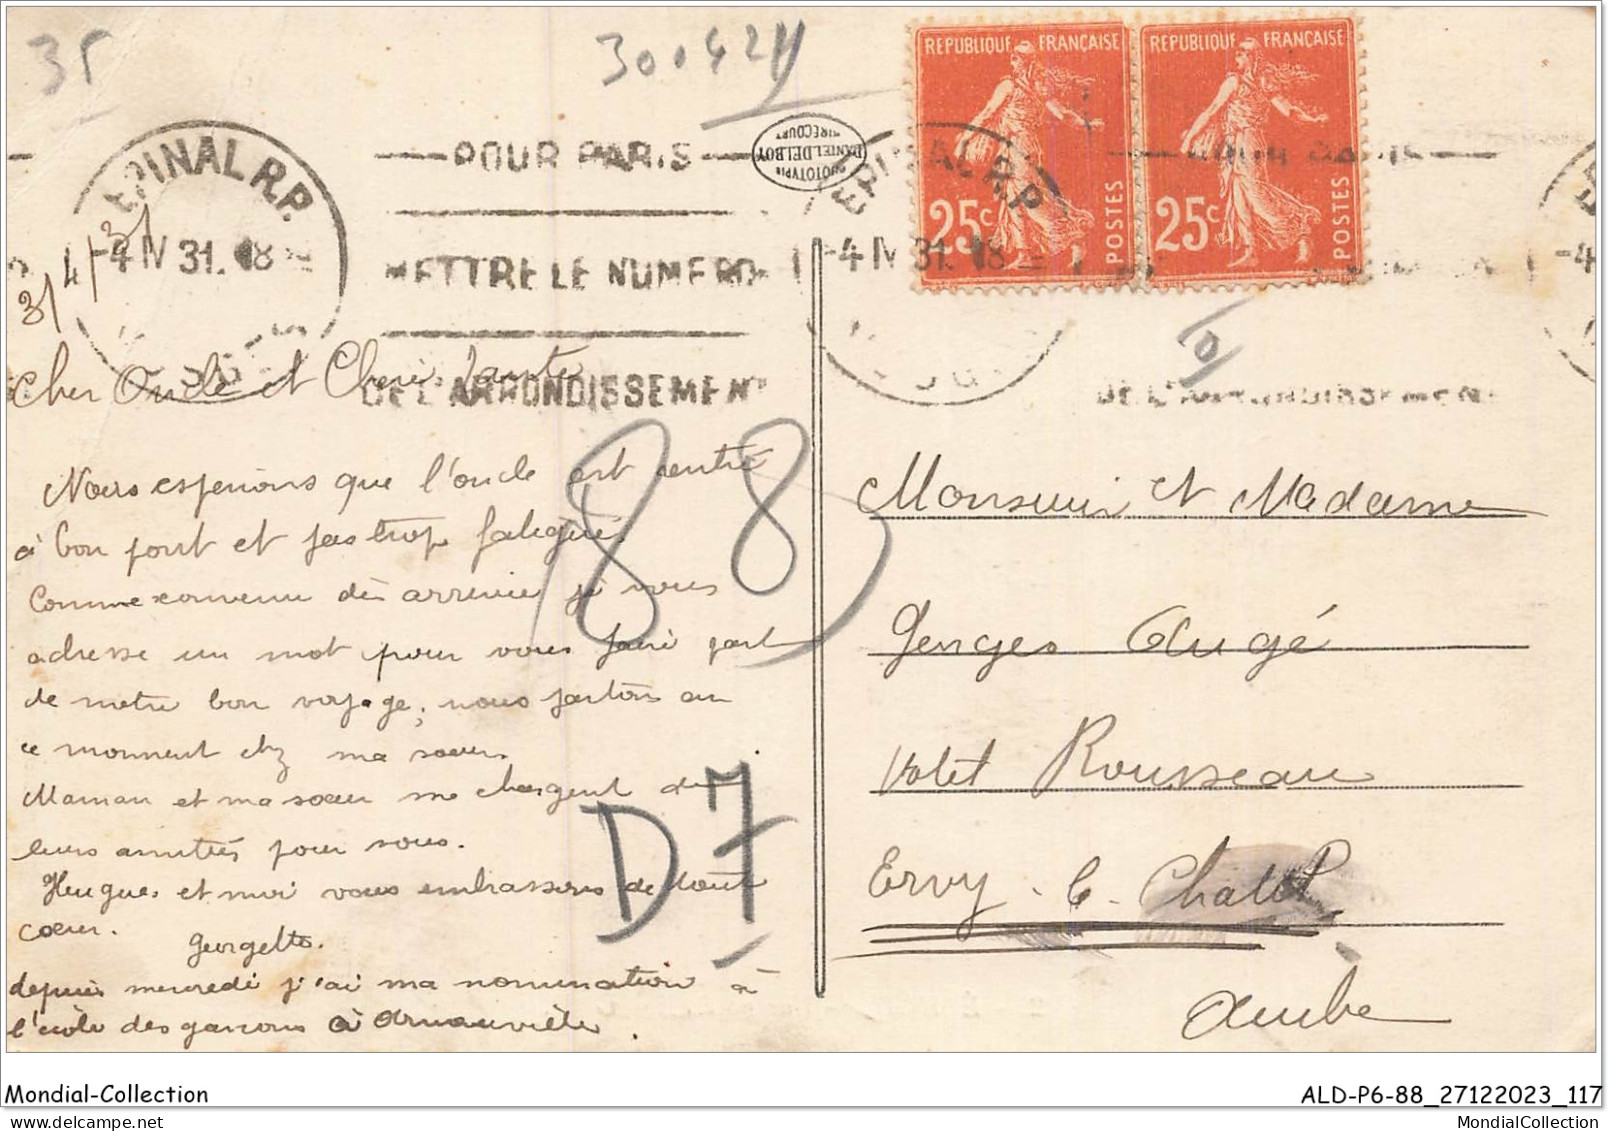 35
30.0424
EPINAL R.P.
-4 IV 31. 18
POUR PARIS
METTRE LE NUMERO
DE L'ARRONDISSEMENT
PHOTOTYPIE
DANIEL DELBOY
MIRECOURT
REPUBLIQUE FRANÇAISE
25c
POSTES
REPUBLIQUE FRANÇAISE
25c
POSTES
EPINAL R.P.
-4 IV 31. 18
DE L'ARRONDISSEMENT
3/4/31
Cher Oncle et Chère Tante
Nous esperions que l'oncle est rentré
à bon port et pas trop fatigué.
Comme convenu dès arrivée je vous
adresse un mot pour vous faire part
de notre bon voyage; nous partons en
ce momment chez ma sœur.
Maman et ma sœur me chargent de
leurs amitiés pour vous.
Hugues et moi vous embrassons de tout
cœur.
Georgette.
depuis mercredi j'ai ma nommination à
l'école des garcons à
88
D7
Monsieur et Madame
Georges Augé
Volet Rousseau
Ervy-le-Chatel
Aube
Mondial-Collection
ALD-P6-88_27122023_117
MondialCollection